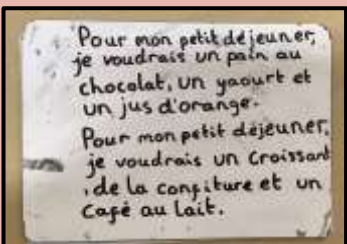 Pour mon petit déjeuner,
je voudrais un pain au
chocolat, un yaourt et
un jus d'orange.
Pour mon petit déjeuner,
je voudrais un croissant
, de la confiture et un
café au lait.